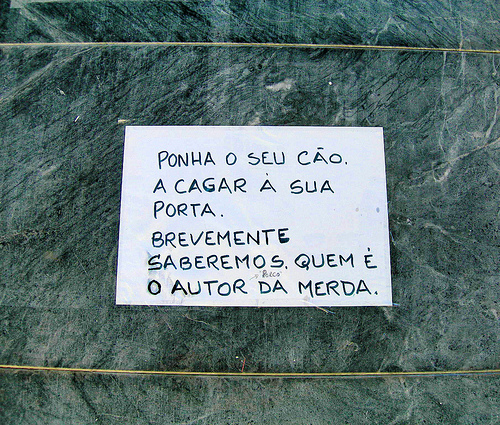 PONHA O SEU CÃO.
A CAGAR À SUA
PORTA.
BREVEMENTE
SABEREMOS, QUEM É
O AUTOR DA MERDA.